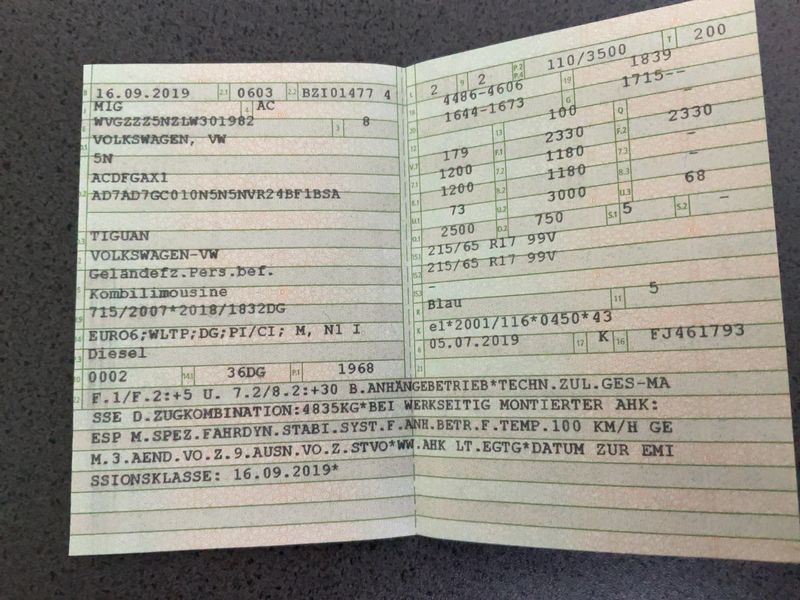 B 16.09.2019 2.1 0603 2.2 BZI01477 4
M1G 4 AC
WVGZZZ5NZLW301982 3 8
VOLKSWAGEN, VW
5N
ACDFGAX1
AD7AD7GC010N5N5NVR24BF1BSA
TIGUAN
VOLKSWAGEN-VW
Geländefz.Pers.bef.
Kombilimousine
715/2007*2018/1832DG
EURO6;WLTP;DG;PI/CI; M, N1 I
Diesel
0002 14.1 36DG P.1 1968
L 2 9 2 P.2 P.4 110/3500 T 200
18 4486-4606 19 1839
20 1644-1673 G 1715--
100 –
12 13 Q
179 F.1 2330 F.2 2330
V.7 1200 7.2 1180 7.3 –
7.1 1200 8.2 1180 8.3 –
8.1 73 U.2 3000 U.3 68
U.1 2500 O.2 750 S.1 5 S.2 –
15.1 215/65 R17 99V
15.2 215/65 R17 99V
15.3 –
R Blau 11 5
K e1*2001/116*0450*43
6 05.07.2019 17 K 16 FJ461793
21
22 F.1/F.2:+5 U. 7.2/8.2:+30 B.ANHÄNGEBETRIEB*TECHN.ZUL.GES-MA
SSE D.ZUGKOMBINATION:4835KG*BEI WERKSEITIG MONTIERTER AHK:
ESP M.SPEZ.FAHRDYN.STABI.SYST.F.ANH.BETR.F.TEMP.100 KM/H GE
M.3.AEND.VO.Z.9.AUSN.VO.Z.STVO*WW.AHK LT.EGTG*DATUM ZUR EMI
SSIONSKLASSE: 16.09.2019*